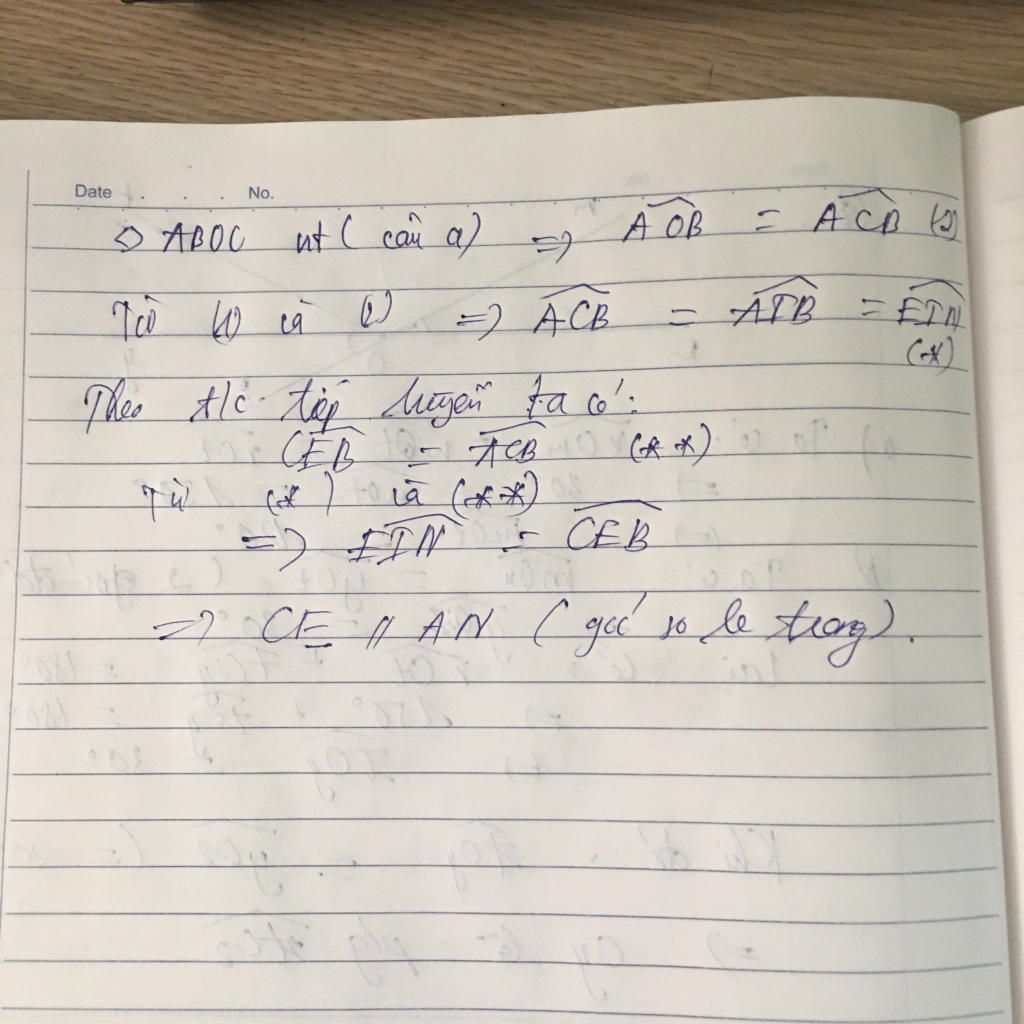 Date . . . . No.
=> ABOC nt ( câu a) => AOB = ACB (2)
Từ (1) và (2) => ACB = AIB = EIN
(*)
Theo t/c tiếp tuyến ta có:
CEB = ACB (**)
Từ (*) và (**)
=> EIN = CEB
=> CE // AN ( góc so le trong).